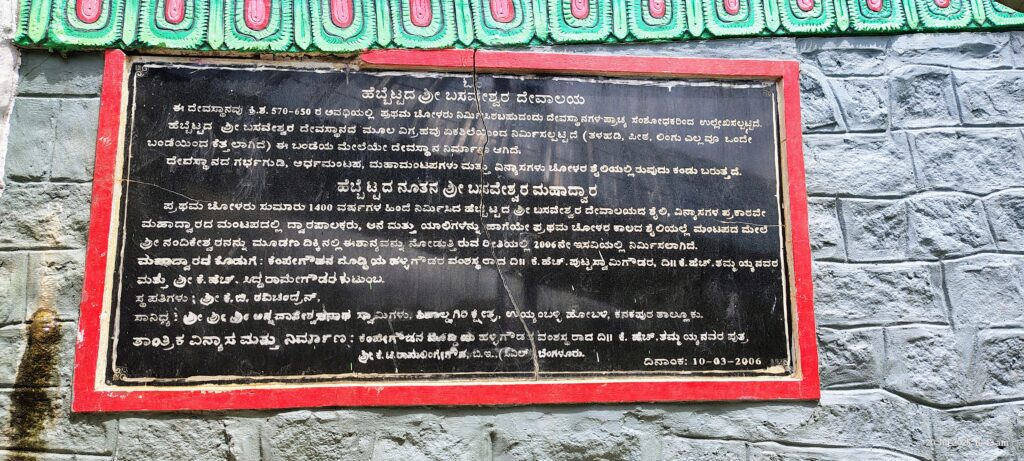 ಓಂ
ಹೆಬ್ಬೆಟ್ಟದ ಶ್ರೀ ಬಸವೇಶ್ವರ ದೇವಾಲಯ
ಈ ದೇವಸ್ಥಾನವು ಕ್ರಿ.ಶ. 570-650 ರ ಅವಧಿಯಲ್ಲಿ ಪ್ರಥಮ ಚೋಳರು ನಿರ್ಮಿಸಿರಬಹುದೆಂದು ದೇವಸ್ಥಾನಗಳ ಪ್ರಾಚ್ಯ ಸಂಶೋಧಕರಿಂದ ಉಲ್ಲೇಖಿಸಲ್ಪಟ್ಟಿದೆ.
ಹೆಬ್ಬೆಟ್ಟದ ಶ್ರೀ ಬಸವೇಶ್ವರ ದೇವಸ್ಥಾನದ ಮೂಲ ವಿಗ್ರಹವು ಏಕಶಿಲೆಯಿಂದ ನಿರ್ಮಿಸಲ್ಪಟ್ಟಿದೆ (ತಳಹದಿ, ಪೀಠ, ಲಿಂಗು ಎಲ್ಲವೂ ಒಂದೇ
ಬಂಡೆಯಿಂದ ಕೆತ್ತಲಾಗಿದೆ) ಈ ಬಂಡೆಯ ಮೇಲೆಯೇ ದೇವಸ್ಥಾನ ನಿರ್ಮಾಣ ಆಗಿದೆ.
ದೇವಸ್ಥಾನದ ಗರ್ಭಗುಡಿ, ಅರ್ಧಮಂಟಪ, ಮಹಾಮಂಟಪಗಳು ಮತ್ತು ವಿನ್ಯಾಸಗಳು ಚೋಳರ ಶೈಲಿಯಲ್ಲಿರುವುದು ಕಂಡು ಬರುತ್ತದೆ.
ಹೆಬ್ಬೆಟ್ಟದ ನೂತನ ಶ್ರೀ ಬಸವೇಶ್ವರ ಮಹಾದ್ವಾರ
ಪ್ರಥಮ ಚೋಳರು ಸುಮಾರು 1400 ವರ್ಷಗಳ ಹಿಂದೆ ನಿರ್ಮಿಸಿದ ಹೆಬ್ಬೆಟ್ಟದ ಶ್ರೀ ಬಸವೇಶ್ವರ ದೇವಾಲಯದ ಶೈಲಿ, ವಿನ್ಯಾಸಗಳ ಪ್ರಕಾರವೇ
ಮಹಾದ್ವಾರದ ಮಂಟಪದಲ್ಲಿ ದ್ವಾರಪಾಲಕರು, ಆನೆ ಮತ್ತು ಯಾಲಿಗಳನ್ನು ಹಾಗೆಯೇ ಪ್ರಥಮ ಚೋಳರ ಕಾಲದ ಶೈಲಿಯಲ್ಲೆ ಮಂಟಪದ ಮೇಲೆ
ಶ್ರೀ ನಂದಿಕೇಶ್ವರನನ್ನು ಮೂಡಣ ದಿಕ್ಕಿನಲ್ಲಿ ಈಶಾನ್ಯವನ್ನು ನೋಡುತ್ತಿರುವ ರೀತಿಯಲ್ಲಿ 2006ನೇ ಇಸವಿಯಲ್ಲಿ ನಿರ್ಮಿಸಲಾಗಿದೆ.
ಮಹಾದ್ವಾರದ ಕೊಡುಗೆ : ಕೆಂಪೇಗೌಡನ ದೊಡ್ಡಿಯ ಹಳ್ಳಿಗೌಡರ ವಂಶಸ್ಥರಾದ ದಿ|| ಕೆ.ಹೆಚ್.ಪುಟ್ಟಸ್ವಾಮಿಗೌಡರ, ದಿ|| ಕೆ.ಹೆಚ್.ತಮ್ಮಯ್ಯನವರ
ಮತ್ತು ಶ್ರೀ ಕೆ.ಹೆಚ್. ಸಿದ್ದರಾಮೇಗೌಡರ ಕುಟುಂಬ.
ಸ್ಥಪತಿಗಳು : ಶ್ರೀ ಕೆ.ಜಿ. ರವಿಚಂದ್ರನ್,
ಸಾನಿಧ್ಯ : ಶ್ರೀ ಶ್ರೀ ಶ್ರೀ ಅನ್ನದಾನೇಶ್ವರನಾಥ ಸ್ವಾಮಿಗಳು, ಕ್ಷೇತ್ರ, ಉಯ್ಯಂಬಳ್ಳಿ ಹೋಬಳಿ, ಕನಕಪುರ ತಾಲ್ಲೂಕು.
ತಾಂತ್ರಿಕ ವಿನ್ಯಾಸ ಮತ್ತು ನಿರ್ಮಾಣ : ಕೆಂಪೇಗೌಡನ ದೊಡ್ಡಿಯ ಹಳ್ಳಿಗೌಡರ ವಂಶಸ್ಥರಾದ ದಿ|| ಕೆ. ಹೆಚ್.ತಮ್ಮಯ್ಯನವರ ಪುತ್ರ,
ಶ್ರೀ ಕೆ.ಟಿ.ರಾಮಲಿಂಗೇಗೌಡ, ಬಿ.ಇ., (ಸಿವಿಲ್) ಬೆಂಗಳೂರು.
ದಿನಾಂಕ: 10-03-2006